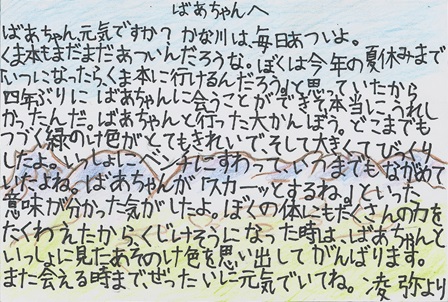 ばあちゃんへ
ばあちゃん元気ですか？かな川は、毎日あついよ。
くま本もまだまだあついんだろうな。ぼくは今年の夏休みまで
「いつになったらくま本に行けるんだろう。」と思っていたから
四年ぶりに ばあちゃんに会うことができて本当にうれし
かったんだ。ばあちゃんと行った大かんぼう。どこまでも
つづく緑のけ色がとてもきれいで、そして大きくてびっくり
したよ。いっしょにベンチにすわって、いつまでもながめて
いたよね。ばあちゃんが「スカーッとするね。」といった
意味が分かった気がしたよ。ぼくの体にもたくさんの力を
たくわえたから、くじけそうになった時は、ばあちゃんと
いっしょに見たあそのけ色を思い出してがんばります。
また会える時まで、ぜったいに元気でいてね。凌弥より